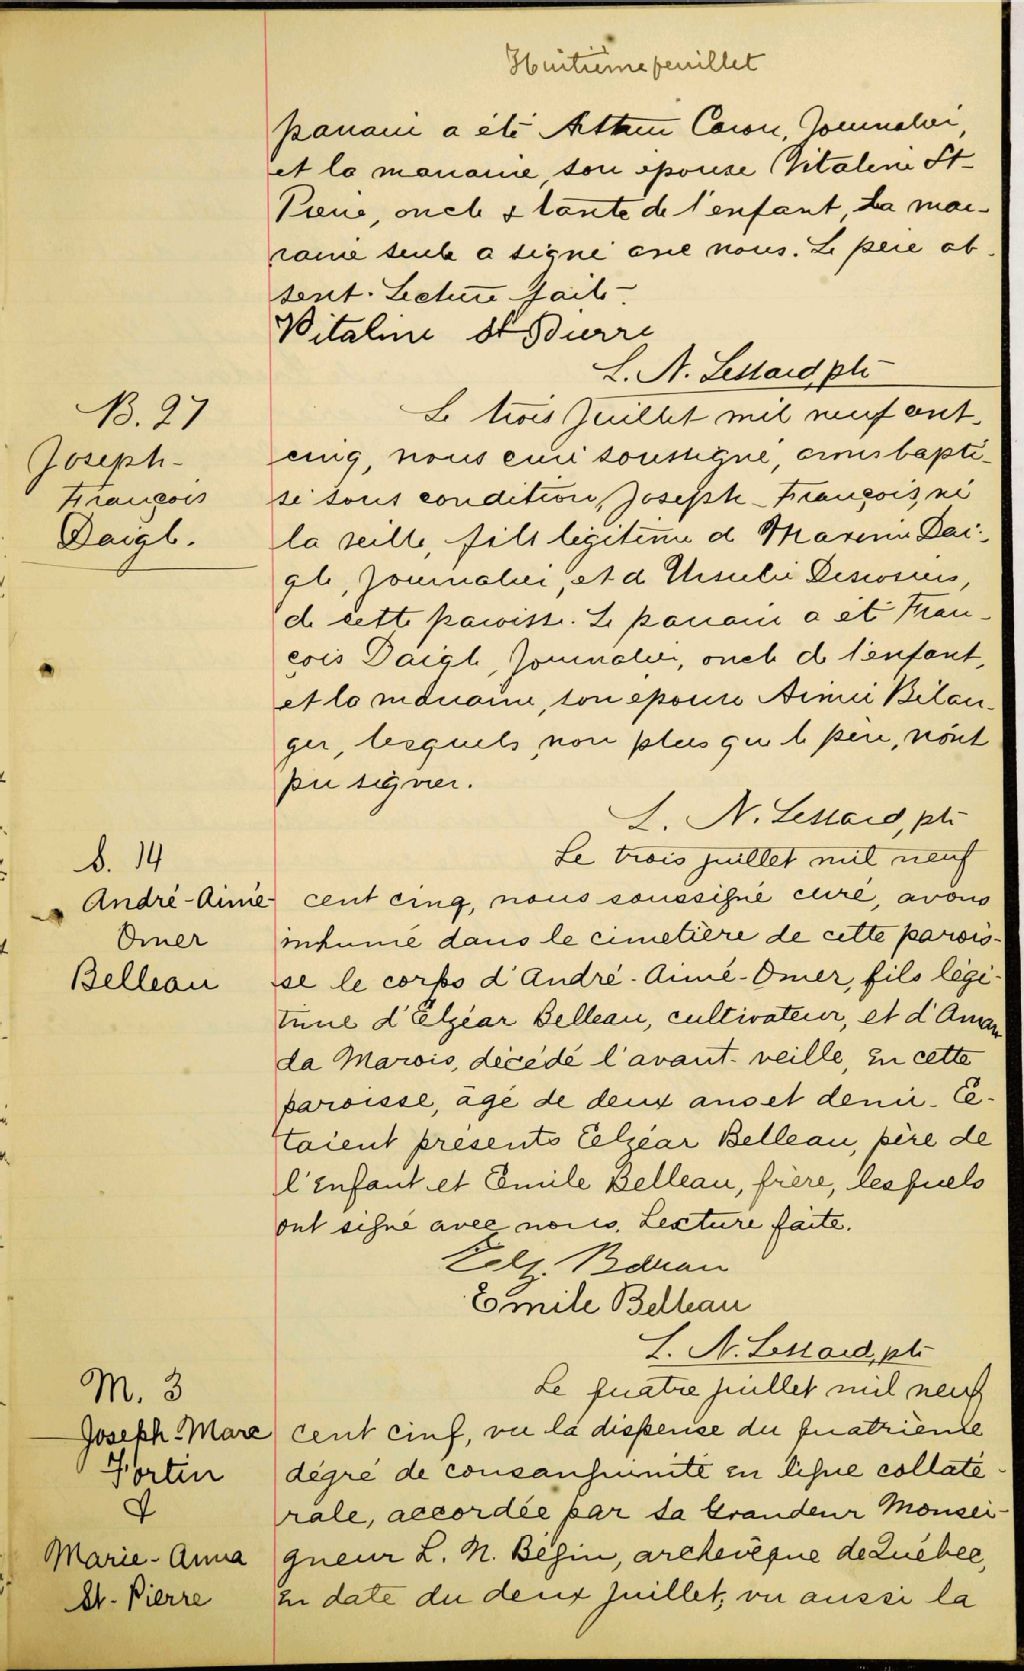 Huitième feuillet
parrain a été Arthur Caron, Journalier,
et la marraine, son épouse Vitaline St-
Pierre, oncle & tante de l'enfant, La mar-
raine seule a signé avec nous. Le père ab-
sent. Lecture faite.
Vitaline St-Pierre
L. N. Lessard, ptr
B. 27
Joseph-
François
Daigle.
Le trois Juillet mil neuf cent-
cinq, nous curé soussigné, avons bapti-
sé sous condition, Joseph-François, né
la veille, fils légitime de Maxime Dai-
gle, Journalier, et de Ursulie Desrosiers,
de cette paroisse. Le parrain a été Fran-
çois Daigle, Journalier, oncle de l'enfant,
et la marraine, son épouse Aimée Bélan-
ger, lesquels, non plus que le père, n'ont
pu signer.
L. N. Lessard, ptr
S. 14
André-Aimé-
Omer
Belleau
Le trois juillet mil neuf
cent cinq, nous soussigné curé, avons
inhumé dans le cimetière de cette parois-
se le corps d'André-Aimé-Omer, fils légi-
time d'Elzéar Belleau, cultivateur, et d'Aman
da Marois, décédé l'avant-veille, en cette
paroisse, âgé de deux ans et demi. E-
taient présents Elzéar Belleau, père de
l'enfant et Emile Belleau, frère, lesquels
ont signé avec nous. Lecture faite.
Elz. Belleau
Emile Belleau
L. N. Lessard, ptr
M. 3
Joseph-Marc
Fortin
&
Marie-Anna
St-Pierre
Le quatre juillet mil neuf
cent cinq, vu la dispense du quatrième
dégré de consanguinité en ligne collaté-
rale, accordée par Sa Grandeur Monsei-
gneur L. N. Bégin, archevêque de Québec,
en date du deux juillet; vu aussi la